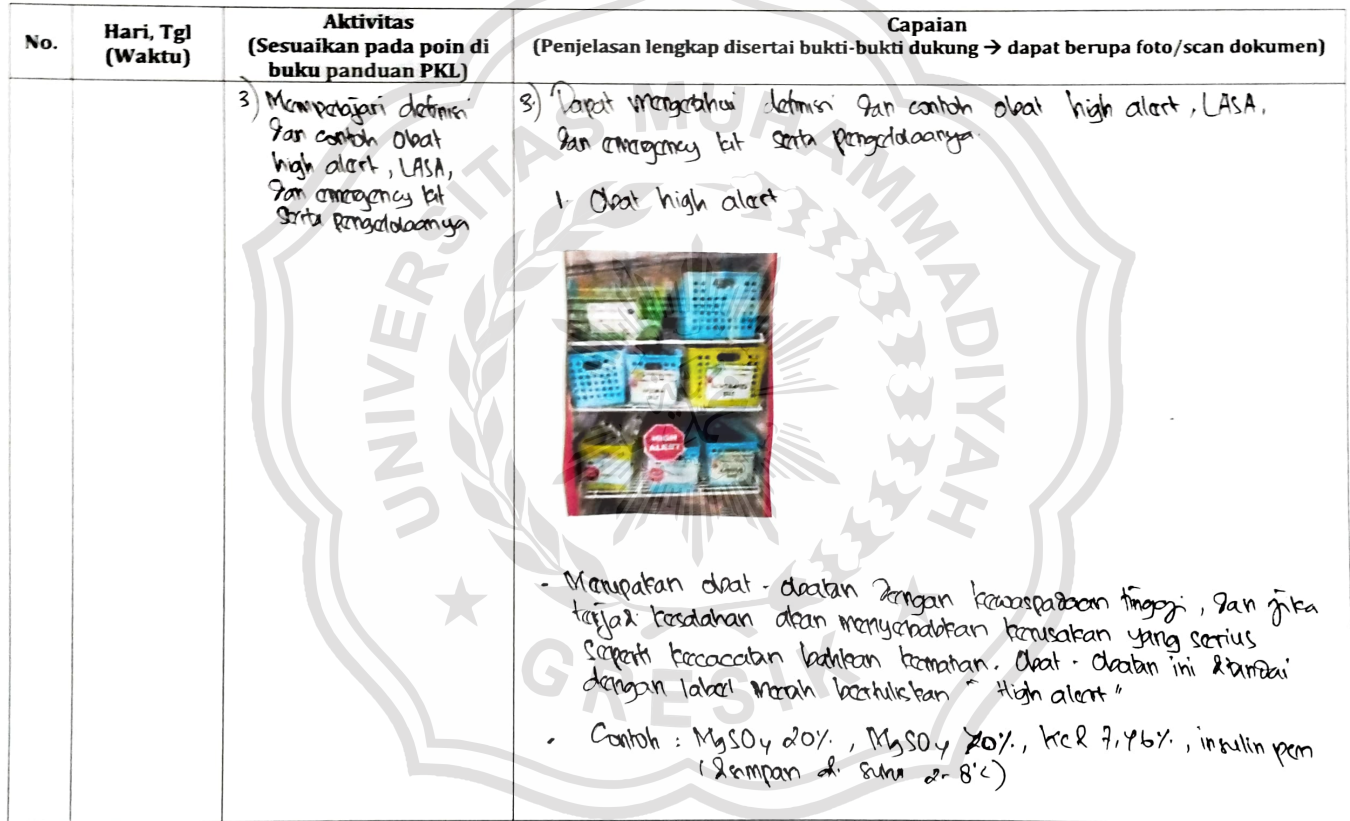 No.
Hari, Tgl
(Waktu)
Aktivitas
(Sesuaikan pada poin di
buku panduan PKL)
Capaian
(Penjelasan lengkap disertai bukti-bukti dukung → dapat berupa foto/scan dokumen)
3) Mempelajari definisi
dan contoh obat
high alert, LASA,
dan emergency kit
serta pengelolaanya
3.) Dapat mengetahui definisi dan contoh obat high alert, LASA,
dan emergency kit serta pengelolaanya.
1. Obat high alert
HIGH
ALERT
- Merupakan obat - obatan dengan kewaspadaan tinggi, dan jika
terjadi kesalahan akan menyebabkan kerusakan yang serius
seperti kecacatan bahkan kematian. Obat - Obatan ini ditandai
dengan label merah bertuliskan "High alert"
- Contoh : MgSO4 20%, MgSO4 40%, KCl 7,46%, insulin pen
(disimpan di suhu 2-8°C)
UNIVERSITAS MUHAMMADIYAH
GRESIK